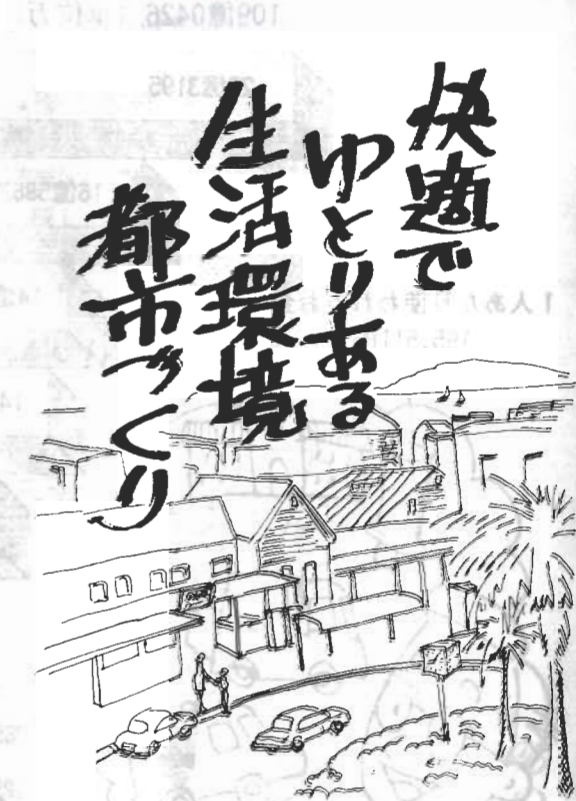 快適で
ゆとりある
生活環境
都市づくり